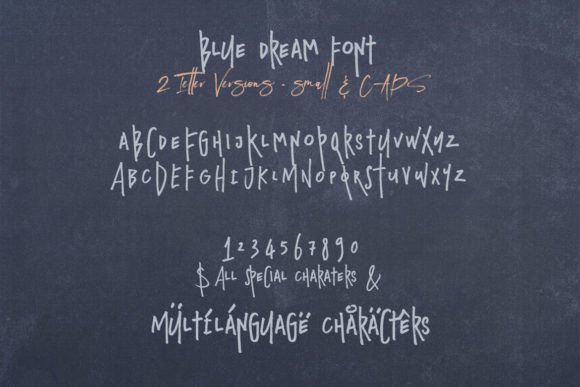 BLUE DREAM FONT
2 Letter Versions - small & CAPS
ABCDEFGHIJKLMNOPQRSTUVWXYZ
ABCDEFGHIJKLMNOPQRSTUVWXYZ
1234567890
$ ALL SPECIAL CHARATERS &
MÜLTÍLÁNGUAGË CHÅRÄCTÊRS